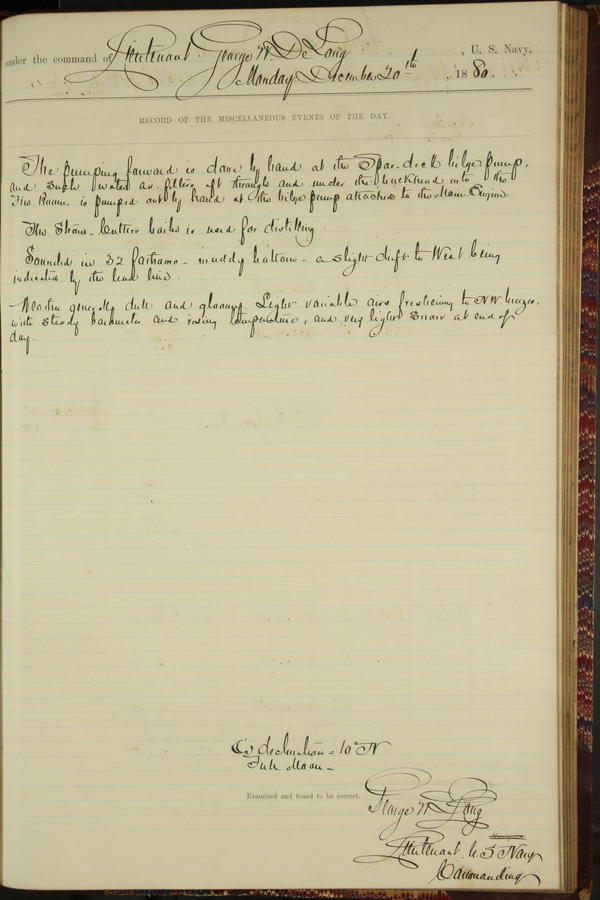 under the command of Lieutenant George W. De Long, U. S. Navy,
Monday December 20th, 1880.
RECORD OF THE MISCELLANEOUS EVENTS OF THE DAY.
The pumping forward is done by hand at the Spar-deck bilge pump,
and such water as filters aft through and under the bulkhead into the
Fire Room, is pumped out by hand at the bilge pump attached to the Main Engine.
The Steam-Cutters boiler is used for distilling.
Sounded in 32 fathoms - muddy bottom - a slight drift to West being
indicated by the lead line.
Weather generally dull and gloomy. Light variable airs freshening to NW breezes,
with steady barometer and rising temperature, and very light snow at end of
day.
declination = 10° N
Full Moon -
Examined and found to be correct.
George W. De Long
Navigator.
Lieutenant U. S Navy
Commanding